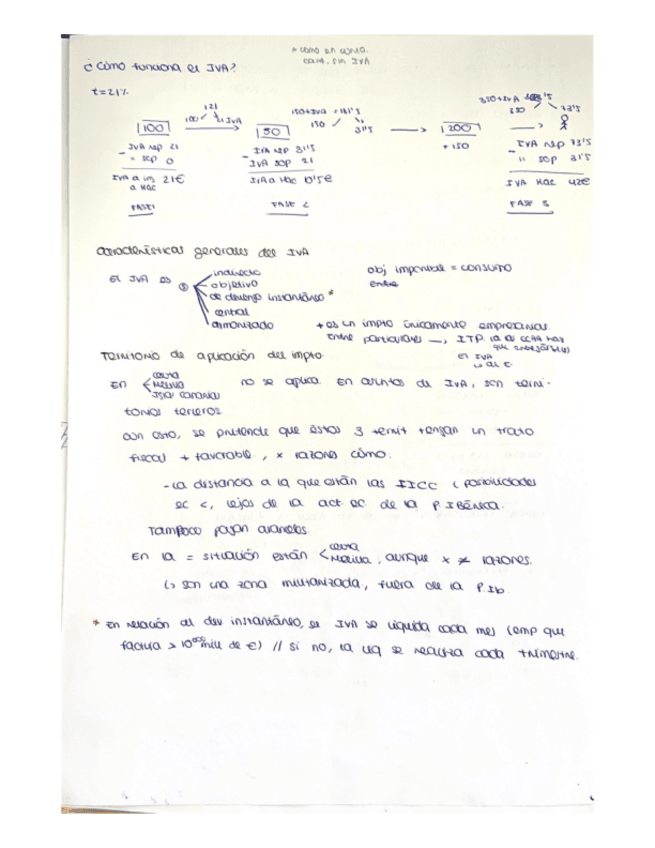 * como en conta.
cant. sin IVA
¿Cómo funciona el IVA?
t=21%
121
100 21 IVA
150+IVA = 181'5
150 31'5
350+IVA
350 73'5
100
50
200
+150
IVA rep 21
- " sop 0
IVA a ing 21€
a Hac
FASE 1
IVA rep 31'5
- IVA sop 21
IVA a Hac 10'5€
FASE 2
IVA rep 73'5
- " sop 31'5
IVA Hac 42€
FASE 3
Características generales del IVA
El IVA es
indirecto
objetivo
de devengo instantáneo *
central
armonizado
obj imponible = consumo
entre
+ es un impto únicamente empresarial.
Entre particulares → ITP
el IVA
Territorio de aplicación del impto.
En Ceuta
Melilla
Islas Canarias
no se aplica. En asuntos de IVA, son terri-
torios terceros.
Con esto, se pretende que estos 3 territ tengan un trato
fiscal + favorable, x razones cómo:
- La distancia a la que están las IICC (posibilidades
ec <, lejos de la act ec de la P. Ibérica.
Tampoco pagan aranceles.
En la = situación están Ceuta
Melilla, aunque x ≠ razones.
↳ son una zona militarizada, fuera de la P. Ib.
* En relación al dev instantáneo, el IVA se liquida cada mes (emp que
factura > mill de €) // si no, la liq se realiza cada trimestre.